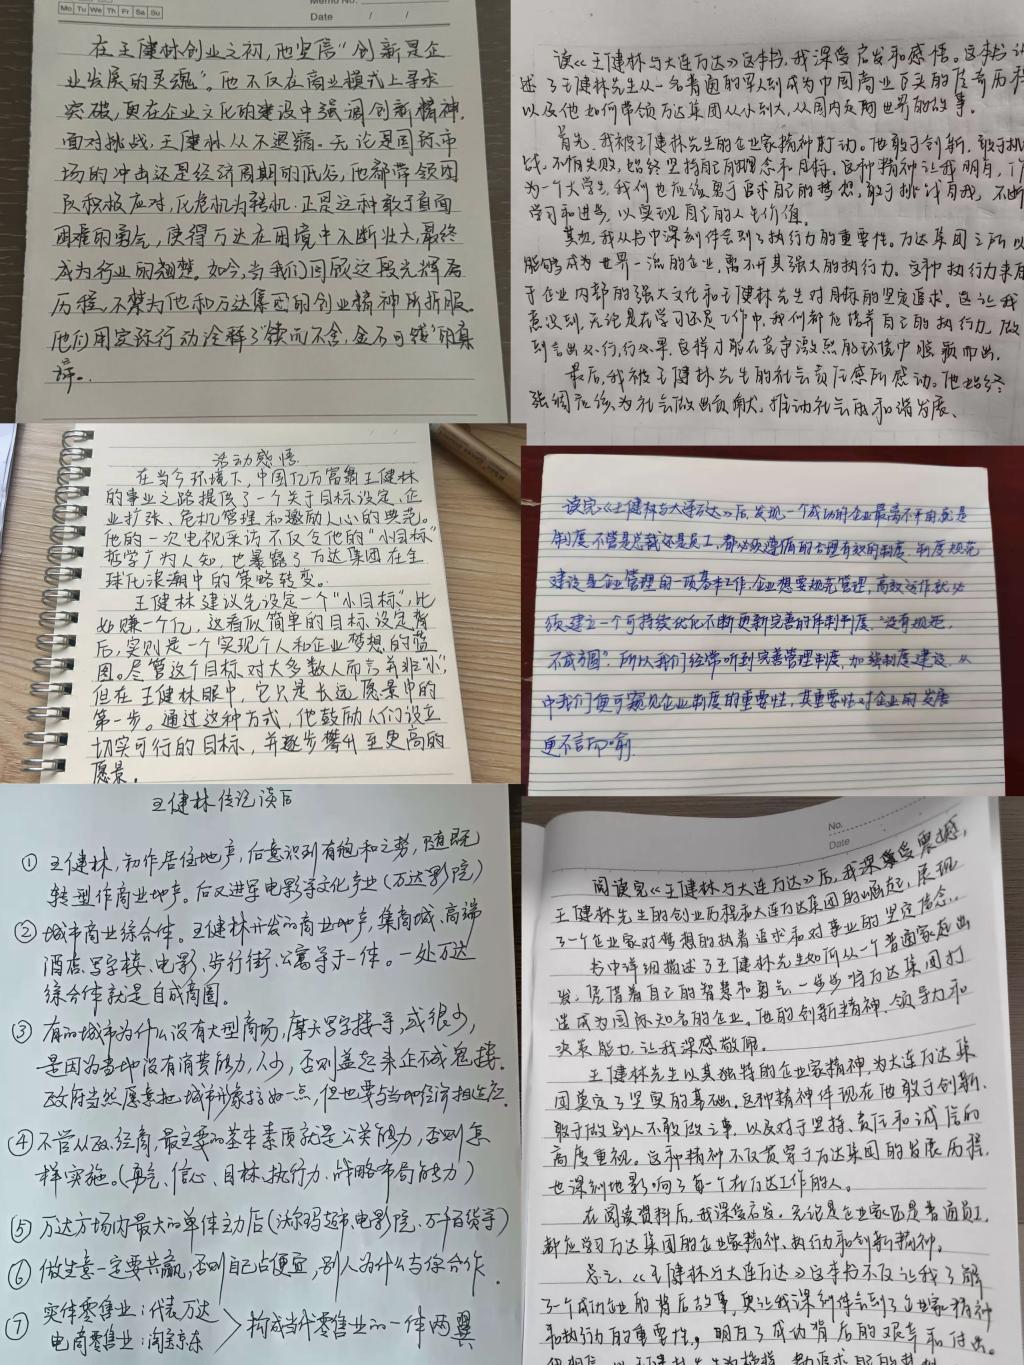 Mo Tu We Th Fr Sa Su
Memo No.
Date / /
在王健林创业之初,他坚信“创新是企
业发展的灵魂”。他不仅在商业模式上寻求
突破,更在企业文化的建设中强调创新精神.
面对挑战,王健林从不退缩。无论是国际市
场的冲击还是经济周期的低谷,他都带领团
队积极应对,化危机为转机.正是这种敢于直面
困难的勇气,使得万达在困境中不断壮大,最终
成为行业的翘楚。如今,当我们回顾这段光辉
历程,不禁为他和万达集团的创业精神所折服。
他们用实际行动诠释了“锲而不舍,金不可镂”的真
谛。
读《王健林与大连万达》这本书,我深受启发和感悟。这本书
述了王健林先生从一名普通的军人到成为中国商业巨头的传奇历程
以及他如何带领万达集团从小到大,从国内走向世界的故事。
首先,我被王健林先生的企业家精神所打动。他敢于创新,敢于挑
战,不怕失败,始终坚持自己的理念和目标。这种精神让我明白,作
为一个大学生,我们也应该勇于追求自己的梦想,敢于挑战自我,不断
学习和进步,以实现自己的人生价值。
其次,我从书中深刻体会到了执行力的重要性。万达集团之所以
能够成为世界一流的企业,离不开其强大的执行力。这种执行力来自
于企业内部的强大文化和王健林先生对目标的坚定追求。这让我
意识到,无论是在学习还是工作中,我们都应培养自己的执行力,做
到言出必行,行必果,这样才能在竞争激烈的环境中脱颖而出。
最后,我被王健林先生的社会责任感所感动。他始终
强调应该为社会做出贡献,推动社会的和谐发展、
活动感悟.
在当今环境下,中国亿万富翁王健林
的事业之路提供了一个关于目标设定、企
业扩张、危机管理和激励人心的典范。
他的一次电视采访不仅令他的“小目标”
哲学广为人知,也暴露了万达集团在全
球化浪潮中的策略转变。
王健林建议先设定一个“小目标”,比
如赚一个亿,这看似简单的目标设定背
后,实则是一个实现个人和企业梦想的蓝
图。尽管这个目标对大多数人而言并非“小”,
但在王健林眼中,它只是长远愿景中的
第一步。通过这种方式,他鼓励人们设立
切实可行的目标,并逐步攀升至更高的
愿景。
读完《王健林与大连万达》后,发现一个成功的企业最离不开的就是
制度,不管是总裁还是员工,都必须遵循的合理有效的制度.制度规范
建设是企业管理的一项基本工作,企业想要规范管理,高效运作就必
须建立一个可持续优化不断更新完善的体制制度.“没有规范,
不成方圆”,所以我们经常听到完善管理制度,加强制度建设.从
中我们便可窥见企业制度的重要性,其重要性对企业的发展
更不言而喻.
王健林传记读后
① 王健林,初作居住地产,后意识到有饱和之势,随既
转型作商业地产。后又进军电影等文化产业(万达影院)
② 城市商业综合体。王健林开发的商业地产,集商城、高端
酒店、写字楼、电影、步行街、公寓等于一体。一处万达
综合体就是自成商圈。
③ 有的城市为什么没有大型商场,摩天写字楼等,或很少,
是因为当地没有消费能力,人少,否则盖起来必成鬼楼.
政府当然愿意把城市形象搞好一点,但也要与当地经济相适应.
④ 不管从政、经商,最主要的基本素质就是公关能力,否则怎
样实施。(勇气、信心、目标、执行力、战略布局能力)
⑤ 万达广场内最大的单体主力店(沃尔玛超市,电影院、万千百货等)
⑥ 做生意一定要共赢,否则自己占便宜,别人为什么与你合作.
⑦ 实体零售业:代表万达
电商零售业:淘宝京东
构成当代零售业的一体两翼
No.
Date
阅读完《王健林与大连万达》后,我深受震撼,
王健林先生的创业历程和大连万达集团的崛起,展现
了一个企业家对梦想的执着追求和对事业的坚定信念.
书中详细描述了王健林先生如何从一个普通家庭出
发,凭借着自己的智慧和勇气,一步步将万达集团打
造成为国际知名的企业。他的创新精神、领导力和
决策能力,让我深感敬佩。
王健林先生以其独特的企业家精神,为大连万达集
团奠定了坚实的基础.这种精神体现在他敢于创新、
敢于做别人不敢做之事,以及对于坚持、责任和诚信的
高度重视。这种精神不仅贯穿于万达集团的发展历程,
也深刻地影响了每一个在万达工作的人。
在阅读资料后,我深受启发.无论是企业家还是普通员工,
都应学习万达集团的企业家精神、执行力和创新精神。
总之,《王健林与大连万达》这本书不仅让我了解
了一个成功企业的背后故事,更让我深刻体会到了企业家精神
和执行力的重要性。明白了成功背后的艰辛和付出。